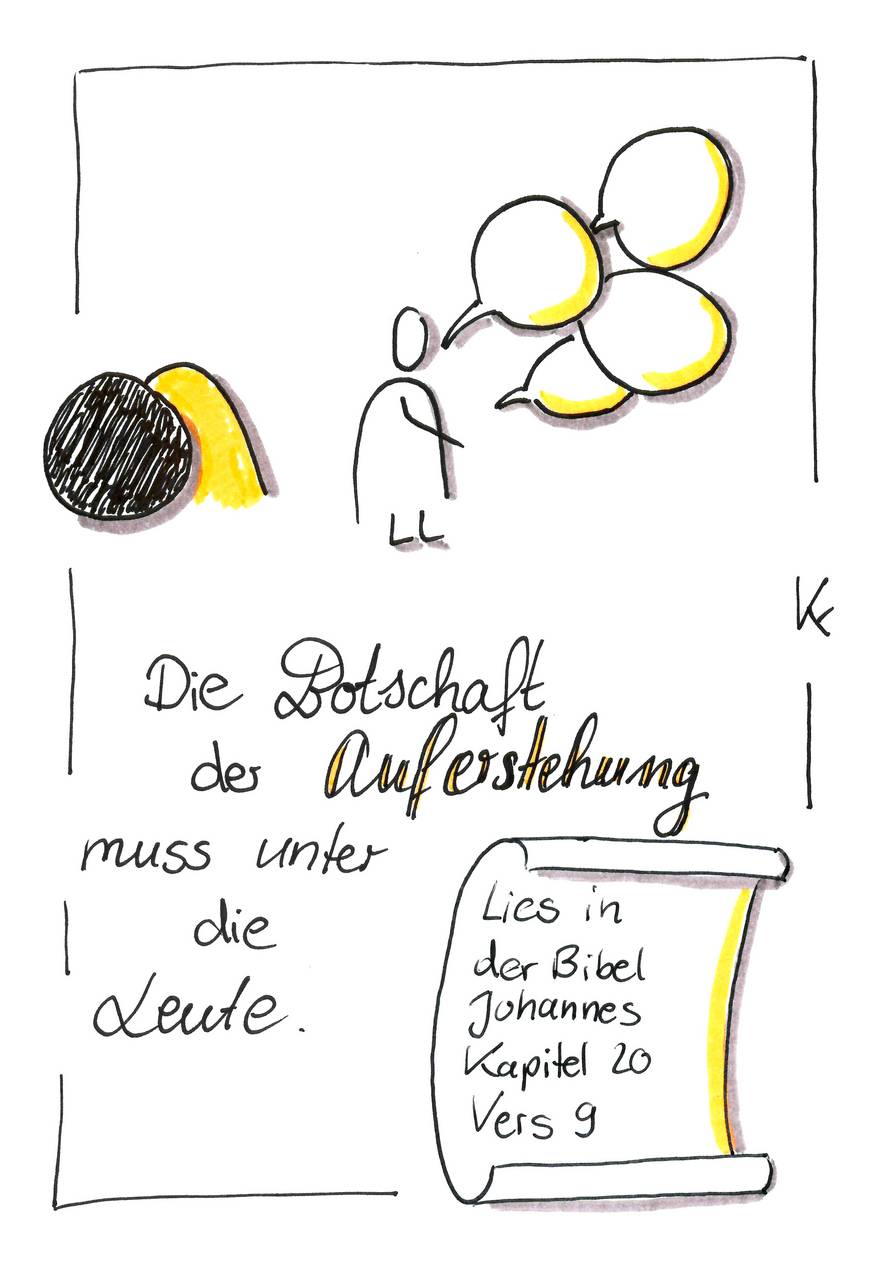 Die Botschaft
der Auferstehung
muss unter
die
Leute.
Lies in
der Bibel
Johannes
Kapitel 20
Vers 9